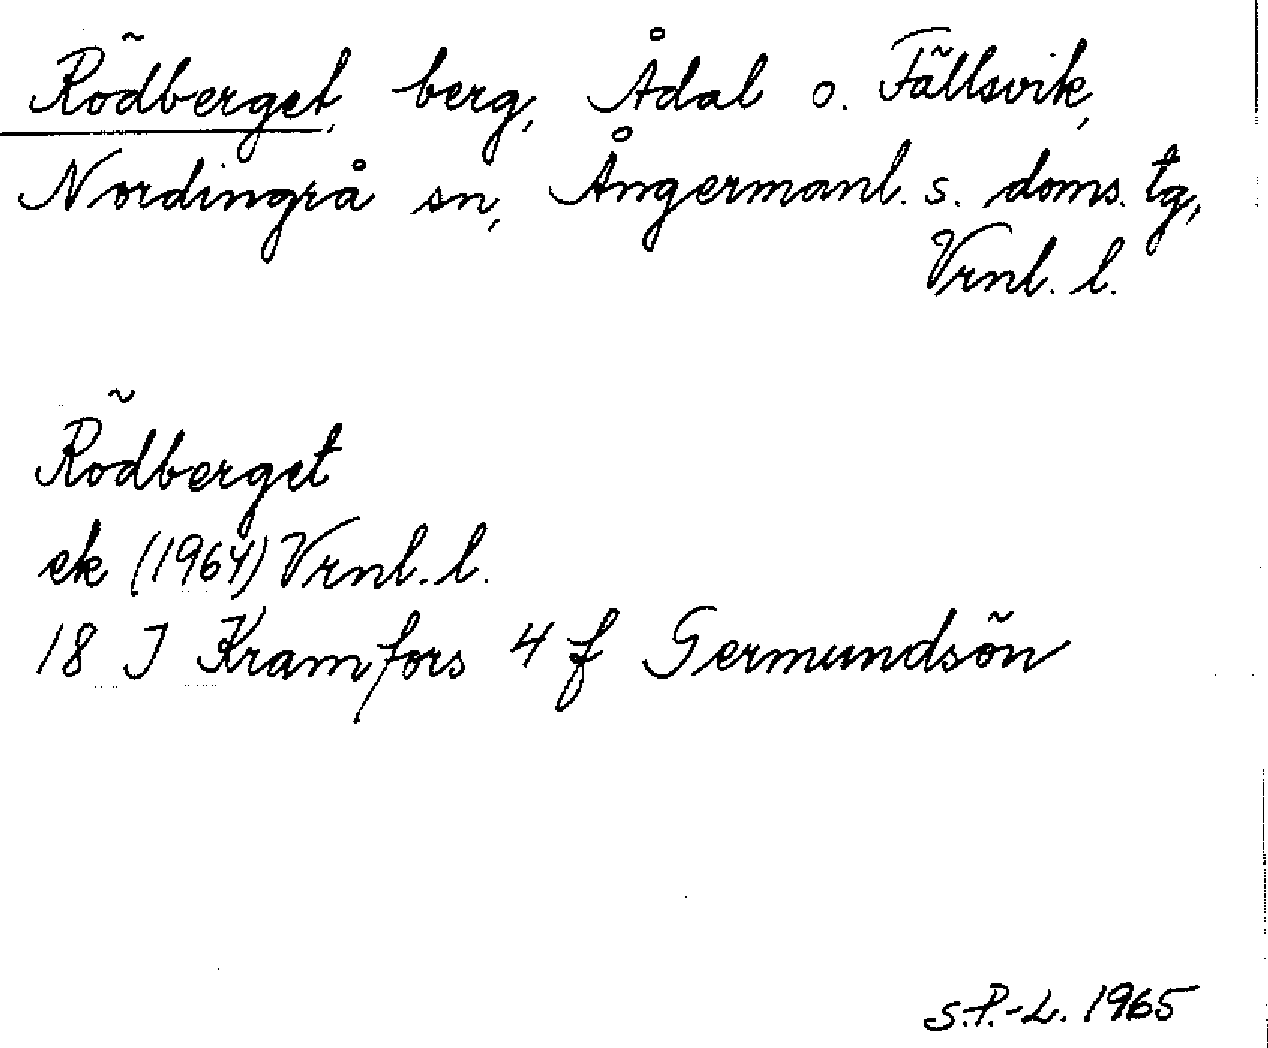 Rödberget, berg, Ådal o. Fällsvik,
Nordingrå sn, Ångermanl. s. doms. tg,
Vrnl. l.
Rödberget
ek (1964) Vrnl. l.
18 J Kramfors 4 f Germundsön
S.P.-L. 1965